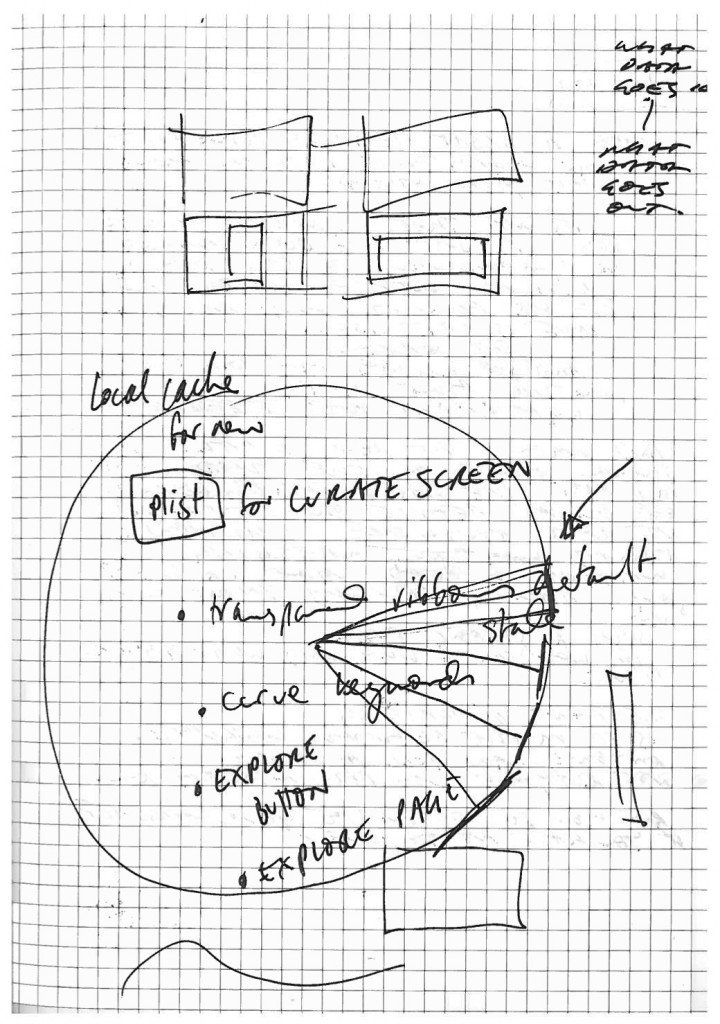 WHAT
DATA
GOES IN
WHAT
DATA
GOES
OUT.
Local cache
for new
plist for CURATE SCREEN
• transparent ribbons default
state
• curve keywords
• EXPLORE
BUTTON
• EXPLORE PAGE